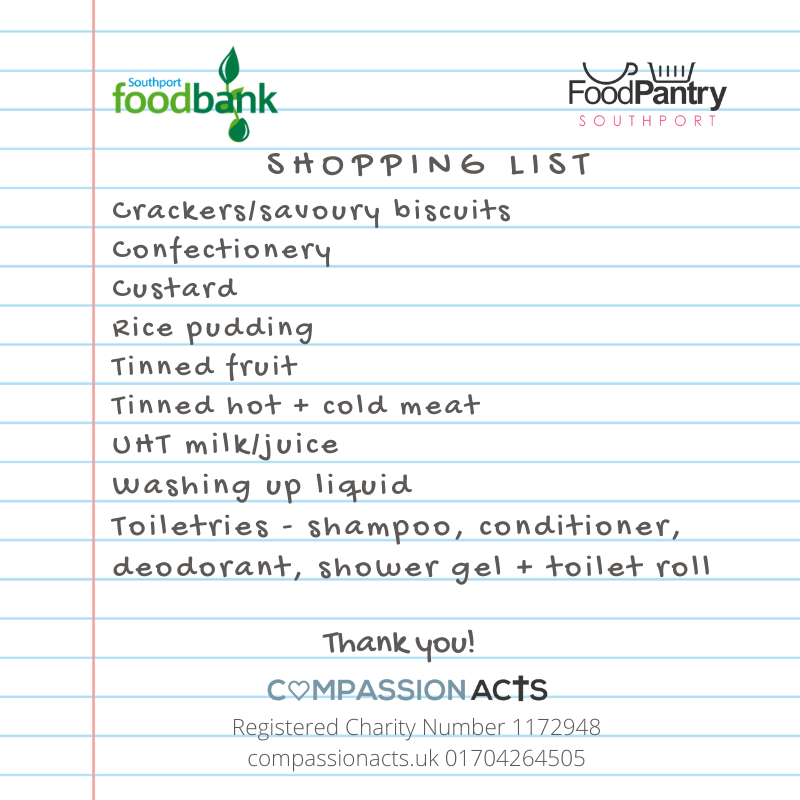 Southport
foodbank
FoodPantry
SOUTHPORT
SHOPPING LIST
Crackers/savoury biscuits
Confectionery
Custard
Rice pudding
Tinned fruit
Tinned hot + cold meat
UHT milk/juice
Washing up liquid
Toiletries - shampoo, conditioner,
deodorant, shower gel + toilet roll
Thank you!
COMPASSION ACTS
Registered Charity Number 1172948
compassionacts.uk 01704264505